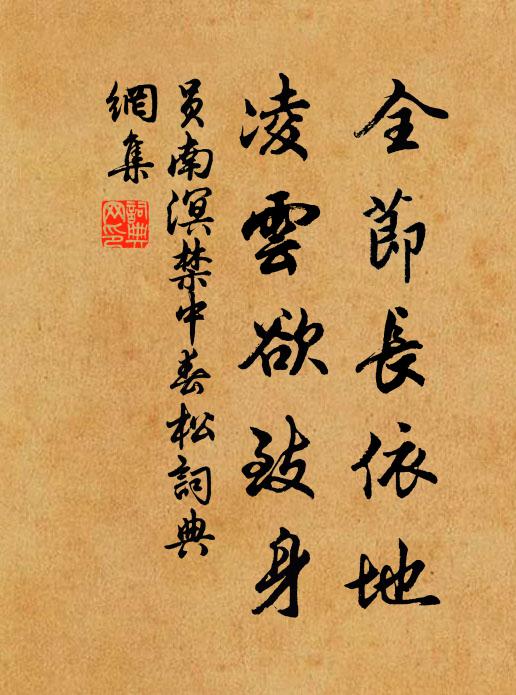 全節長依地
凌雲欲致身
員南溟禁中春松詞典
網集
詞典
网印